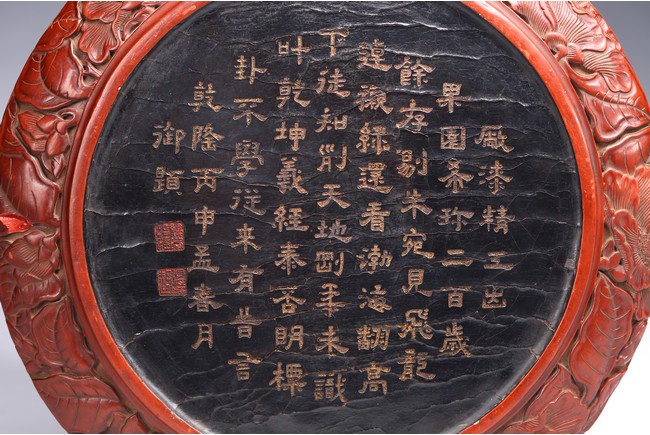 厰漆精工出
果園希珍二百歲
餘存剔朱宛見飛龍
襯緑還看渤海翻高
下徒知別天地剛柔未識
叶乾坤羲經泰否明標
卦不學從来有昔言
乾隆丙申孟春月
御題